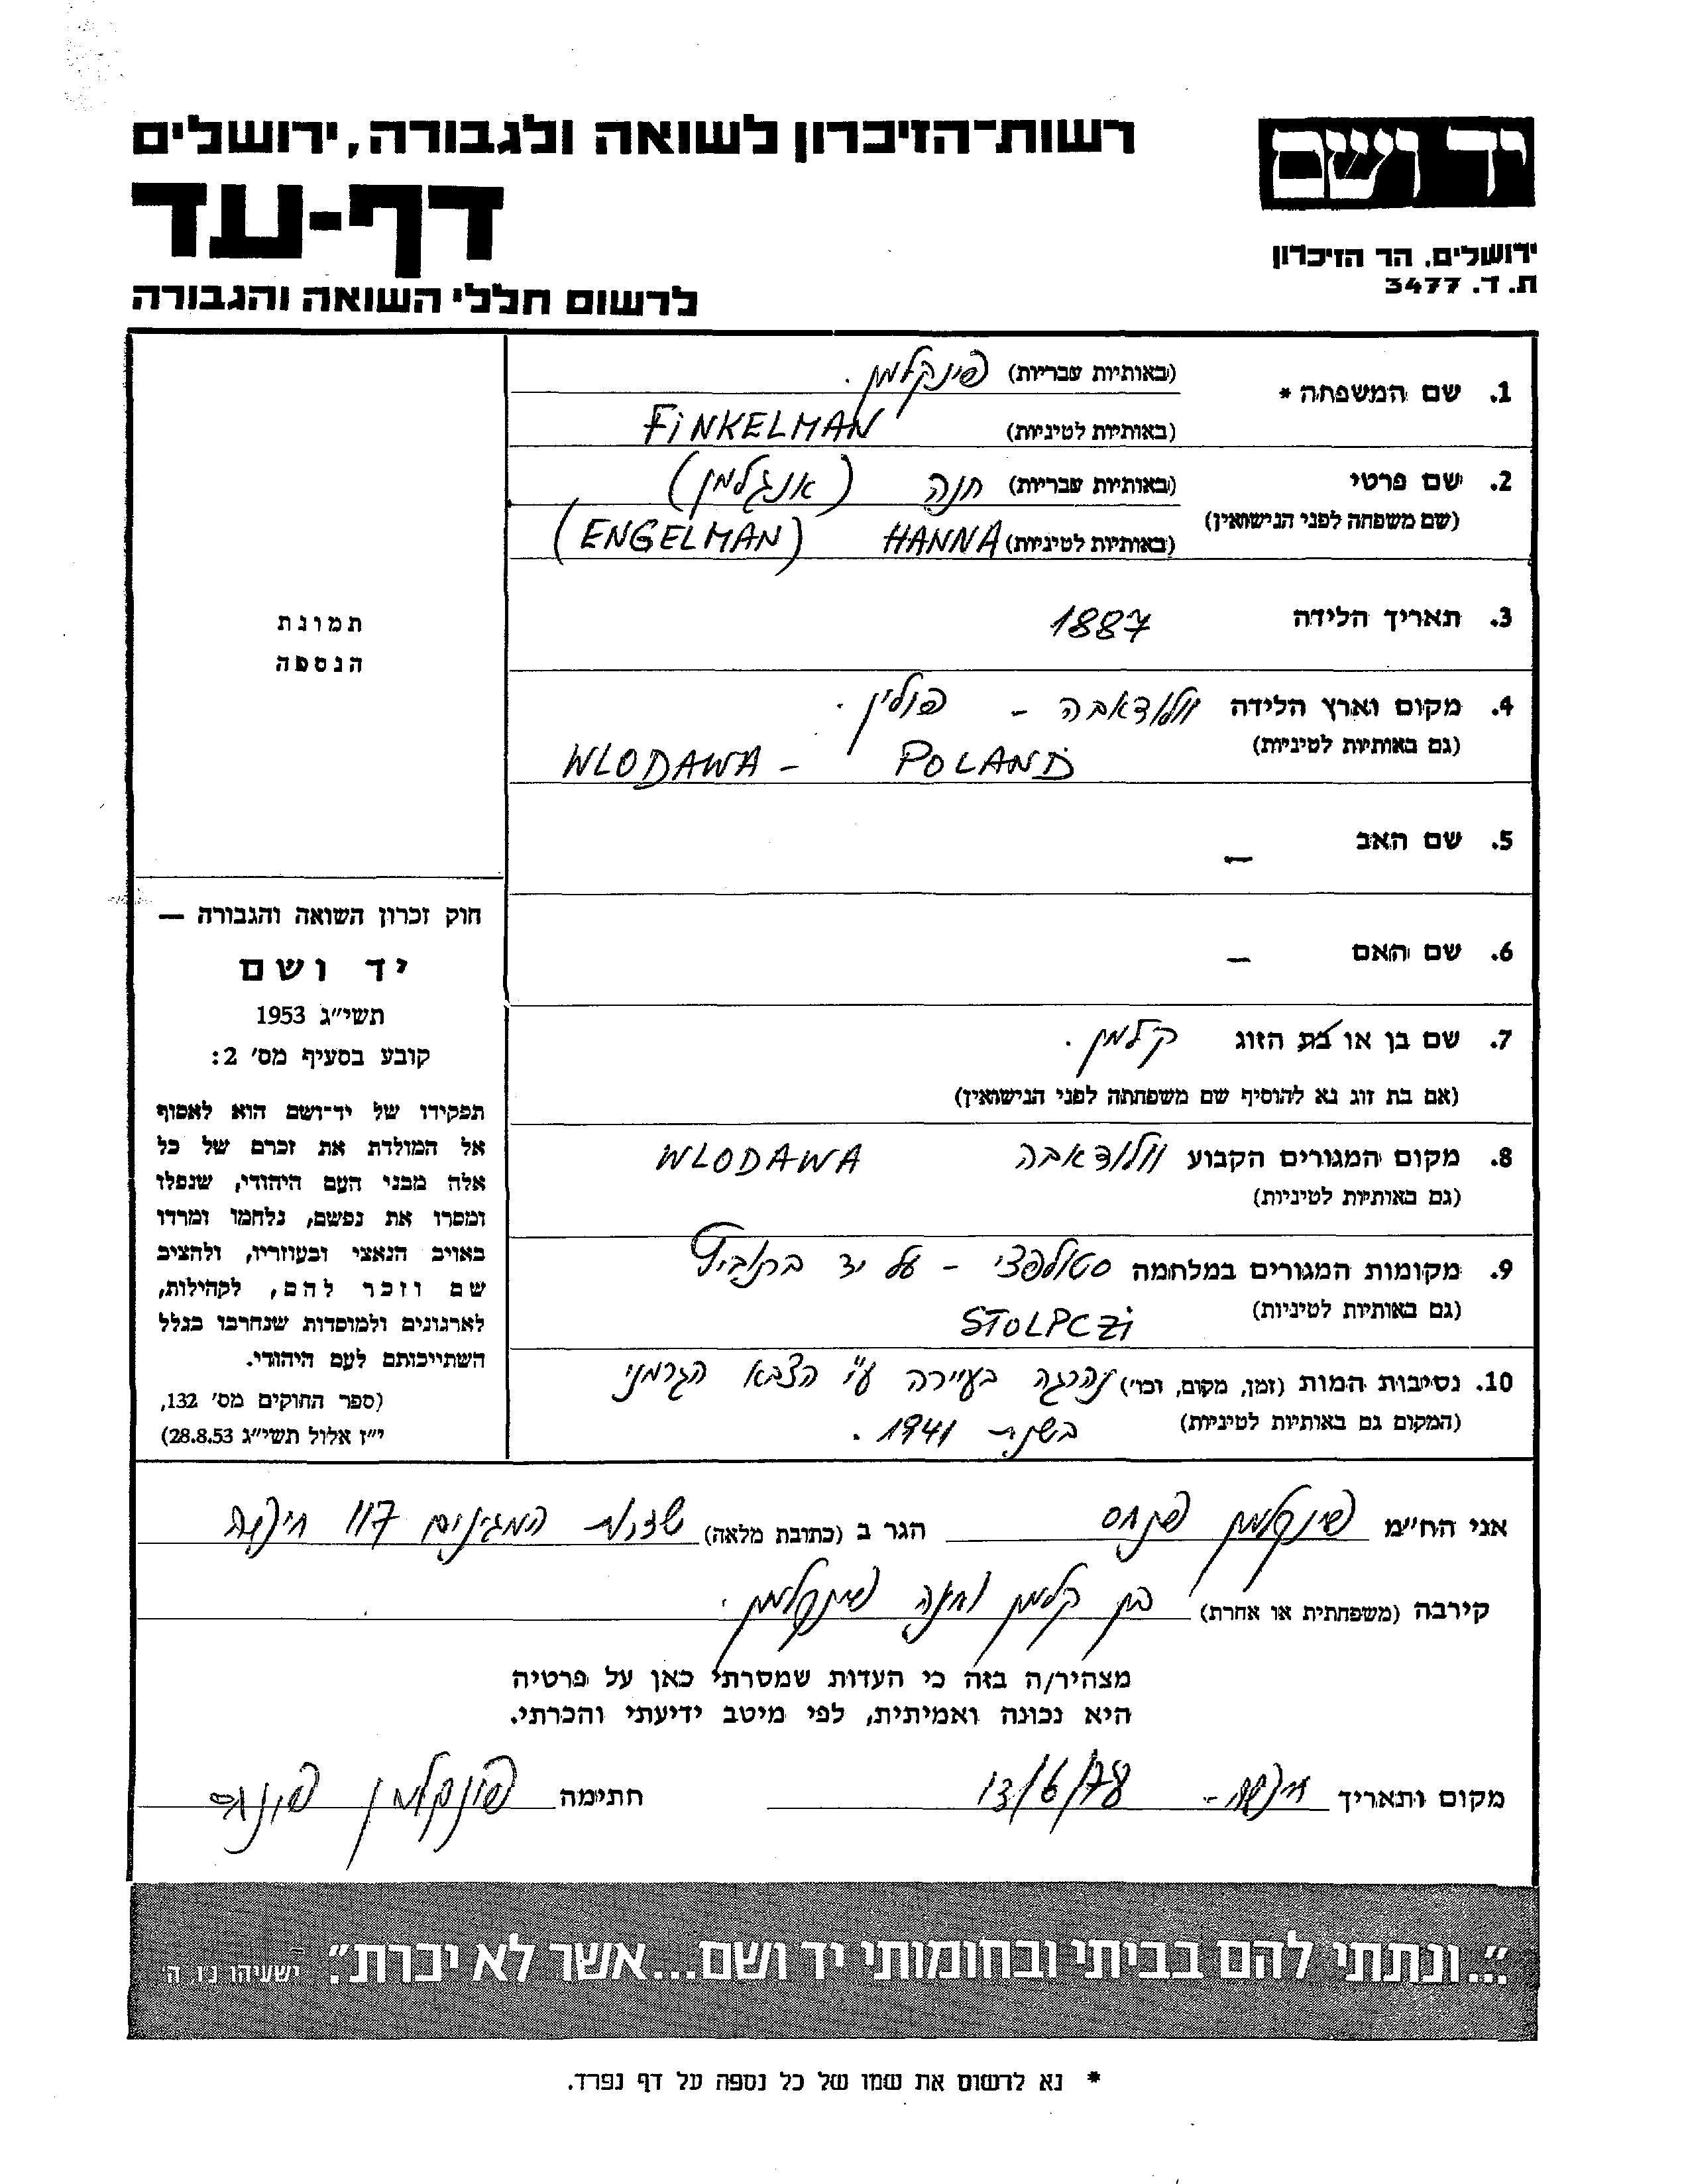 רשות־הזיכרון לשואה ולגבורה, ירושלים
דף-עד
לרשום חללי השואה והגבורה
יד ושם
ירושלים, הר הזיכרון
ת. ד. 3477
1. שם המשפחה * (באותיות עבריות) פינקלמן.
(באותיות לטיניות) FINKELMAN
2. שם פרטי (באותיות עבריות) חנה (אנגלמן)
(שם משפחה לפני הנישואין) (באותיות לטיניות) HANNA (ENGELMAN)
3. תאריך הלידה 1887
4. מקום וארץ הלידה וולודאבה - פולין.
(גם באותיות לטיניות) WLODAWA - POLAND
5. שם האב –
6. שם האם –
7. שם בן או בת הזוג קלמן.
(אם בת זוג נא להוסיף שם משפחתה לפני הנישואין)
8. מקום המגורים הקבוע וולודאבה WLODAWA
(גם באותיות לטיניות)
9. מקומות המגורים במלחמה סטולפצי - על יד ברנוביץ
(גם באותיות לטיניות) STOLPCZI
10. נסיבות המות (זמן, מקום, וכו') נהרגה בעיירה ע"י הצבא הגרמני
(המקום גם באותיות לטיניות) בשנת 1941.
תמונת
הנספה
חוק זכרון השואה והגבורה —
יד ושם
תשי"ג 1953
קובע בסעיף מס' 2:
תפקידו של יד־ושם הוא לאסוף
אל המולדת את זכרם של כל
אלה מבני העם היהודי, שנפלו
ומסרו את נפשם, נלחמו ומרדו
באויב הנאצי ובעוזריו, ולהציב
שם וזכר להם, לקהילות,
לארגונים ולמוסדות שנחרבו בגלל
השתייכותם לעם היהודי.
(ספר החוקים מס' 132,
י"ז אלול תשי"ג 28.8.53)
אני הח"מ פינקלמן פנחס הגר ב (כתובת מלאה) שדרות המגינים 117 חיפה
קירבה (משפחתית או אחרת) בן קלמן וחנה פינקלמן.
מצהיר/ה בזה כי העדות שמסרתי כאן על פרטיה
היא נכונה ואמיתית, לפי מיטב ידיעתי והכרתי.
מקום ותאריך חיפה - 13/6/78 חתימה פינקלמן פינחס
"...ונתתי להם בביתי ובחומותי יד ושם...אשר לא יכרת". ישעיהו נ"ו, ה'
* נא לרשום את שמו של כל נספה על דף נפרד.